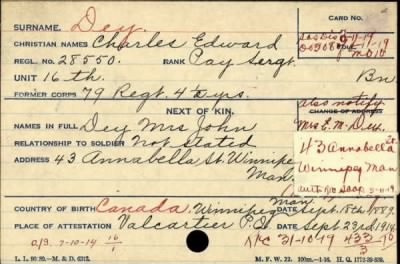 SURNAME. Dey.
CARD NO.
CHRISTIAN NAMES Charles Edward
REGL. NO. 28550. RANK Pay Sergt.
UNIT 16th. Bn
FORMER CORPS 79 Regt. 4 Yrs.
NEXT OF KIN.
also notify
CHANGE OF ADDRESS
NAMES IN FULL Dey Mrs John
Mrs E. M. Dey.
RELATIONSHIP TO SOLDIER Not stated
43 Annabella St
ADDRESS 43 Annabella St. Winnipeg
Winnipeg Man
Man.
COUNTRY OF BIRTH Canada. Winnipeg Man. DATE Sept. 18th 1889.
PLACE OF ATTESTATION Valcartier P.Q. DATE Sept 23rd 1914
7-10-14 16/1 31-10-19
L. P. M. & D. 6312. M. F. W. 22.